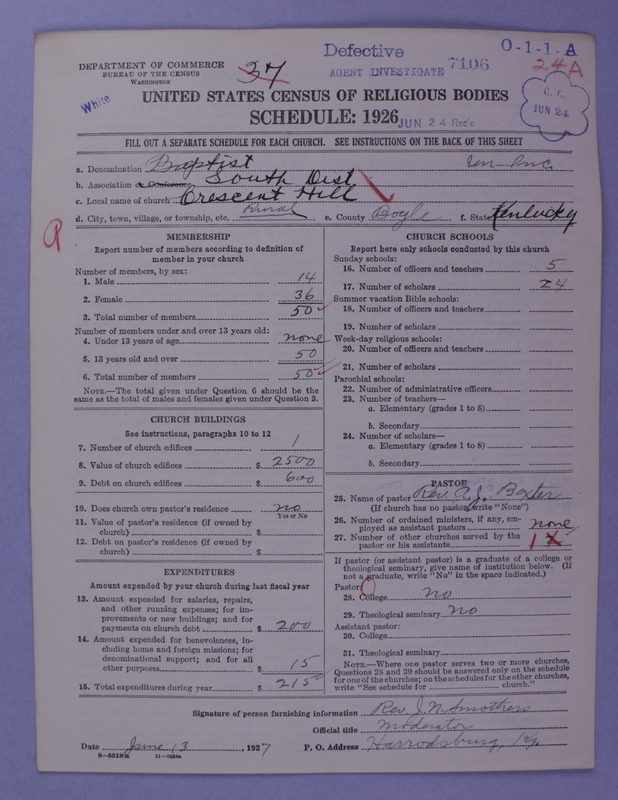 Defective
O-1-1-A
24A
DEPARTMENT OF COMMERCE
BUREAU OF THE CENSUS
WASHINGTON
37
AGENT INVESTIGATE 7106
C. C.
JUN 24
White
UNITED STATES CENSUS OF RELIGIOUS BODIES
SCHEDULE: 1926
JUN 24 Rec'd
FILL OUT A SEPARATE SCHEDULE FOR EACH CHURCH. SEE INSTRUCTIONS ON THE BACK OF THIS SHEET
a. Denomination Baptist
b. Association or Conference South Dist
c. Local name of church Crescent Hill
d. City, town, village, or township, etc. Rural e. County Boyle f. State Kentucky
MEMBERSHIP
Report number of members according to definition of
member in your church
Number of members, by sex:
1. Male 14
2. Female 36
3. Total number of members 50
Number of members under and over 13 years old:
4. Under 13 years of age none
5. 13 years old and over 50
6. Total number of members 50
NOTE.—The total given under Question 6 should be the
same as the total of males and females given under Question 3.
CHURCH BUILDINGS
See instructions, paragraphs 10 to 12
7. Number of church edifices 1
8. Value of church edifices $ 2500
9. Debt on church edifices $ 600
10. Does church own pastor's residence no
Yes or No
11. Value of pastor's residence (if owned by
church) $
12. Debt on pastor's residence (if owned by
church) $
EXPENDITURES
Amount expended by your church during last fiscal year
13. Amount expended for salaries, repairs,
and other running expenses; for im-
provements or new buildings; and for
payments on church debt $ 200
14. Amount expended for benevolences, in-
cluding home and foreign missions; for
denominational support; and for all
other purposes $ 15
15. Total expenditures during year $ 215
CHURCH SCHOOLS
Report here only schools conducted by this church
Sunday schools:
16. Number of officers and teachers 5
17. Number of scholars 24
Summer vacation Bible schools:
18. Number of officers and teachers
19. Number of scholars
Week-day religious schools:
20. Number of officers and teachers
21. Number of scholars
Parochial schools:
22. Number of administrative officers
23. Number of teachers—
a. Elementary (grades 1 to 8)
b. Secondary
24. Number of scholars—
a. Elementary (grades 1 to 8)
b. Secondary
PASTOR
25. Name of pastor Rev. A. J. Baxter
(If church has no pastor, write "None")
26. Number of ordained ministers, if any, em-
ployed as assistant pastors none
27. Number of other churches served by the
pastor or his assistants 1
If pastor (or assistant pastor) is a graduate of a college or
theological seminary, give name of institution below. (If
not a graduate, write "No" in the space indicated.)
Pastor: O
28. College no
29. Theological seminary no
Assistant pastor:
30. College
31. Theological seminary
NOTE.—Where one pastor serves two or more churches,
Questions 28 and 29 should be answered only on the schedule
for one of the churches; on the schedules for the other churches,
write "See schedule for church."
Signature of person furnishing information Rev. J. N. Smothers
Official title Moderator
Date June 13, 1927 P. O. Address Harrodsburg, Ky.